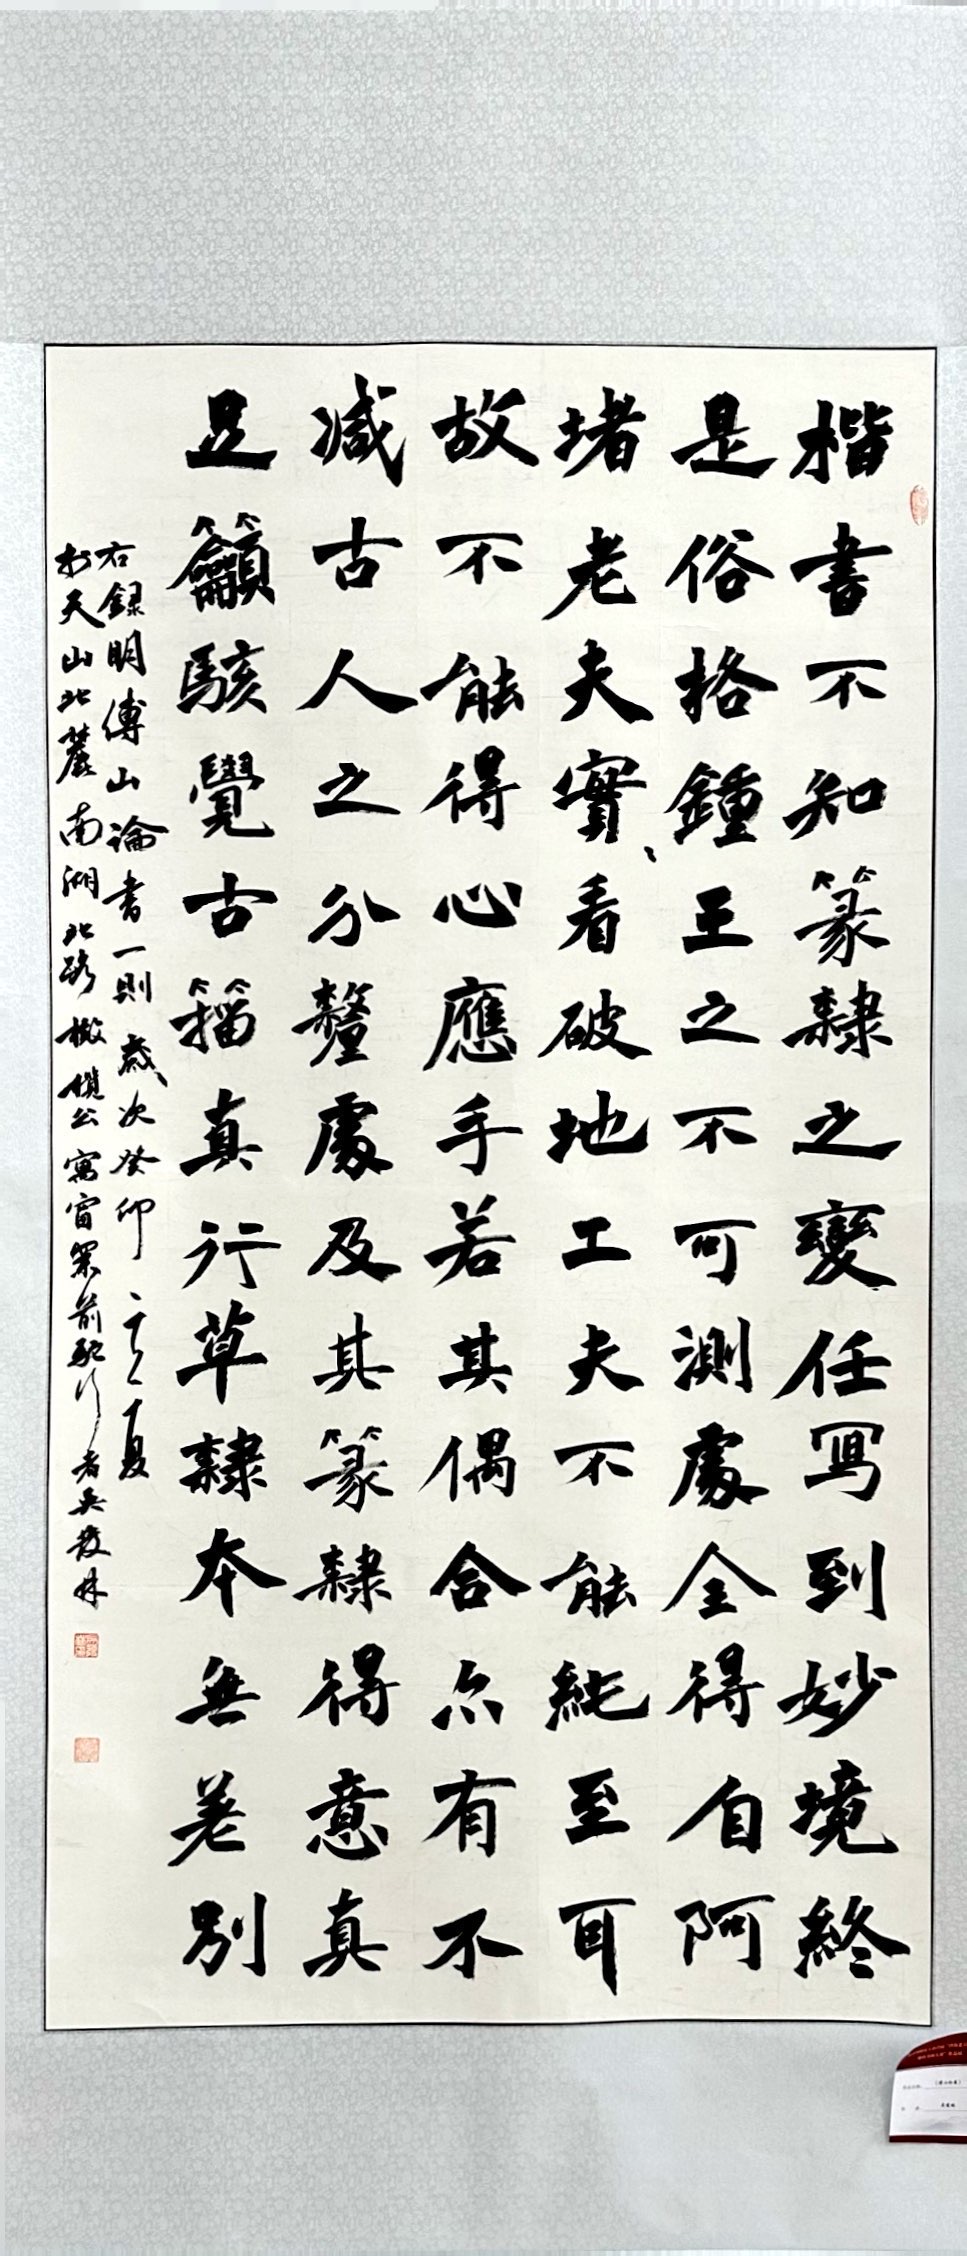 楷書不知篆隸之變任寫到妙境終
是俗格鍾王之不可測處全得自阿
堵老夫實〻看破地工夫不能純至耳
故不能得心應手若其偶合亦有不
減古人之分釐處及其篆隸得意真
足籲駭覺古籀真行草隸本無差別
右録明傅山論書一則歲次癸卯之夏
於天山北麓南湖北路撒懶公寓窗案前耽行者吳發林